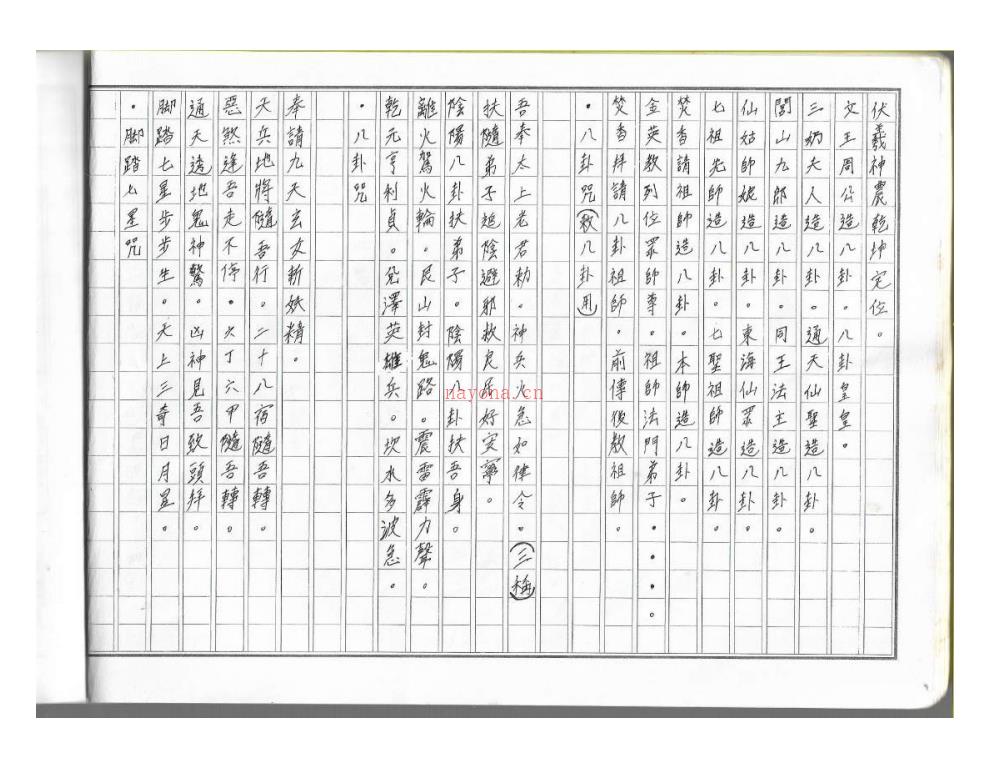 伏羲神農乾坤定位。
文王周公造八卦。八卦皇皇。
三奶夫人造八卦。通天仙聖造八卦。
閭山九郎造八卦。同王法主造八卦。
仙姑師娘造八卦。東海仙眾造八卦。
七祖先師造八卦。七聖祖師造八卦。
焚香請祖師造八卦。本師造八卦。
金英教列位眾師尊。祖師法門弟子。。。。
焚香拜請八卦祖師。前傳後教祖師。
・八卦咒(敕八卦用)
吾奉太上老君勅。神兵火急如律令。(三稱)
扶隨弟子追陰避邪救良民好安寧。
陰陽八卦扶弟子。陰陽八卦扶吾身。
離火駕火輪。艮山封鬼路。震雷霹力聲。
乾元亨利貞。兌澤英雄兵。坎水多波急。
・八卦咒
奉請九天玄女斬妖精。
天兵地將隨吾行。二十八宿隨吾轉。
惡煞逢吾走不停。火丁六甲隨吾轉。
通天透地鬼神驚。凶神見吾致頭拜。
脚踏七星步步生。天上三奇日月星。
・脚踏七星咒
nayona.cn